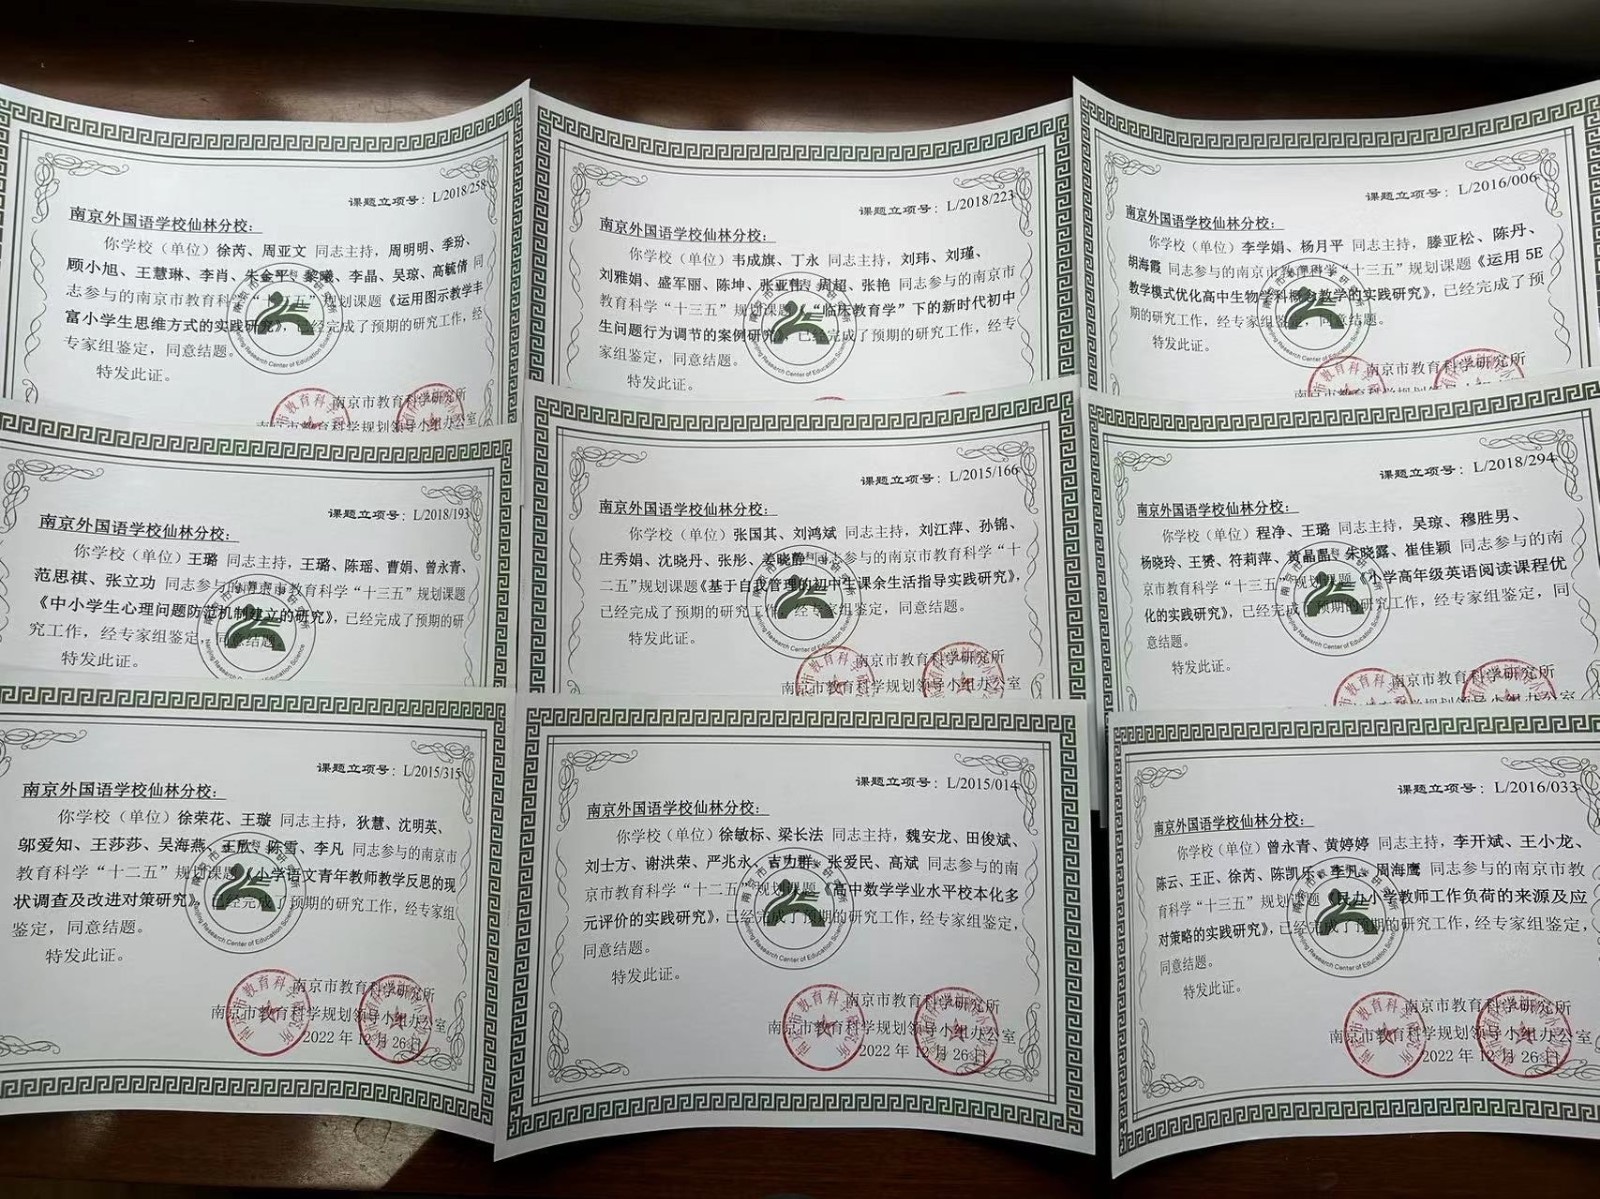 课题立项号：L/2018/258
南京外国语学校仙林分校：
你学校（单位）徐芮、周亚文 同志主持，周明明、季玢、
顾小旭、王慧琳、李肖、朱金平、黎曦、李晶、吴琼、高毓倩 同
志参与的南京市教育科学“十三五”规划课题《运用图示教学丰
富小学生思维方式的实践研究》，已经完成了预期的研究工作，经
专家组鉴定，同意结题。
特发此证。
南京市教育科学研究所
南京市教育科学规划领导小组办公室
课题立项号：L/2018/223
南京外国语学校仙林分校：
你学校（单位）韦成旗、丁永 同志主持，刘玮、刘瑾、
刘雅娟、盛军丽、陈坤、张亚伟、周超、张艳 同志参与的南京市
教育科学“十三五”规划课题《“临床教育学”下的新时代初中
生问题行为调节的案例研究》，已经完成了预期的研究工作，经专
家组鉴定，同意结题。
特发此证。
课题立项号：L/2016/006
南京外国语学校仙林分校：
你学校（单位）李学娟、杨月平 同志主持，滕亚松、陈丹、
胡海霞 同志参与的南京市教育科学“十三五”规划课题《运用 5E
教学模式优化高中生物学科概念教学的实践研究》，已经完成了预
期的研究工作，经专家组鉴定，同意结题。
特发此证。
南京市教育科学研究所
课题立项号：L/2018/193
南京外国语学校仙林分校：
你学校（单位）王璐 同志主持，王璐、陈瑶、曹娟、曾永青、
范思祺、张立功 同志参与的南京市教育科学“十三五”规划课题
《中小学生心理问题防范机制建立的研究》，已经完成了预期的研
究工作，经专家组鉴定，同意结题。
特发此证。
课题立项号：L/2015/166
南京外国语学校仙林分校：
你学校（单位）张国其、刘鸿斌 同志主持，刘江萍、孙锦、
庄秀娟、沈晓丹、张彤、姜晓静 同志参与的南京市教育科学“十
二五”规划课题《基于自我管理的初中生课余生活指导实践研究》，
已经完成了预期的研究工作，经专家组鉴定，同意结题。
特发此证。
南京市教育科学研究所
南京市教育科学规划领导小组办公室
课题立项号：L/2018/294
南京外国语学校仙林分校：
你学校（单位）程净、王璐 同志主持，吴琼、穆胜男、
杨晓玲、王赟、符莉萍、黄晶晶、朱晓露、崔佳颖 同志参与的南
京市教育科学“十三五”规划课题《小学高年级英语阅读课程优
化的实践研究》，已经完成了预期的研究工作，经专家组鉴定，同
意结题。
特发此证。
南京市教育科学研究所
课题立项号：L/2015/315
南京外国语学校仙林分校：
你学校（单位）徐荣花、王璇 同志主持，狄慧、沈明英、
邬爱知、王莎莎、吴海燕、王欣、陈雪、李凡 同志参与的南京市
教育科学“十二五”规划课题《小学语文青年教师教学反思的现
状调查及改进对策研究》，已经完成了预期的研究工作，经专家组
鉴定，同意结题。
特发此证。
南京市教育科学研究所
南京市教育科学规划领导小组办公室
2022 年 12 月 26 日
课题立项号：L/2015/014
南京外国语学校仙林分校：
你学校（单位）徐敏标、梁长法 同志主持，魏安龙、田俊斌、
刘士方、谢洪荣、严兆永、吉为群、张爱民、高斌 同志参与的南
京市教育科学“十二五”规划课题《高中数学学业水平校本化多
元评价的实践研究》，已经完成了预期的研究工作，经专家组鉴定，
同意结题。
特发此证。
南京市教育科学研究所
南京市教育科学规划领导小组办公室
2022 年 12 月 26 日
课题立项号：L/2016/033
南京外国语学校仙林分校：
你学校（单位）曾永青、黄婷婷 同志主持，李开斌、王小龙、
陈云、王正、徐芮、陈凯乐、李凡、周海鹰 同志参与的南京市教
育科学“十三五”规划课题《民办小学教师工作负荷的来源及应
对策略的实践研究》，已经完成了预期的研究工作，经专家组鉴定，
同意结题。
特发此证。
南京市教育科学研究所
南京市教育科学规划领导小组办公室
2022 年 12 月 26 日